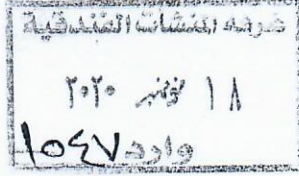 غرفة المنشآت الفندقية
١٨ نوفمبر ٢٠٢٠
وارد ١٠٤٧